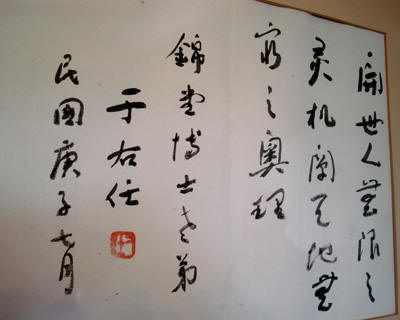 開世人無限之
灵机闡天地無
窮之奧理
錦堂博士老弟
于右任
民國庚子七月